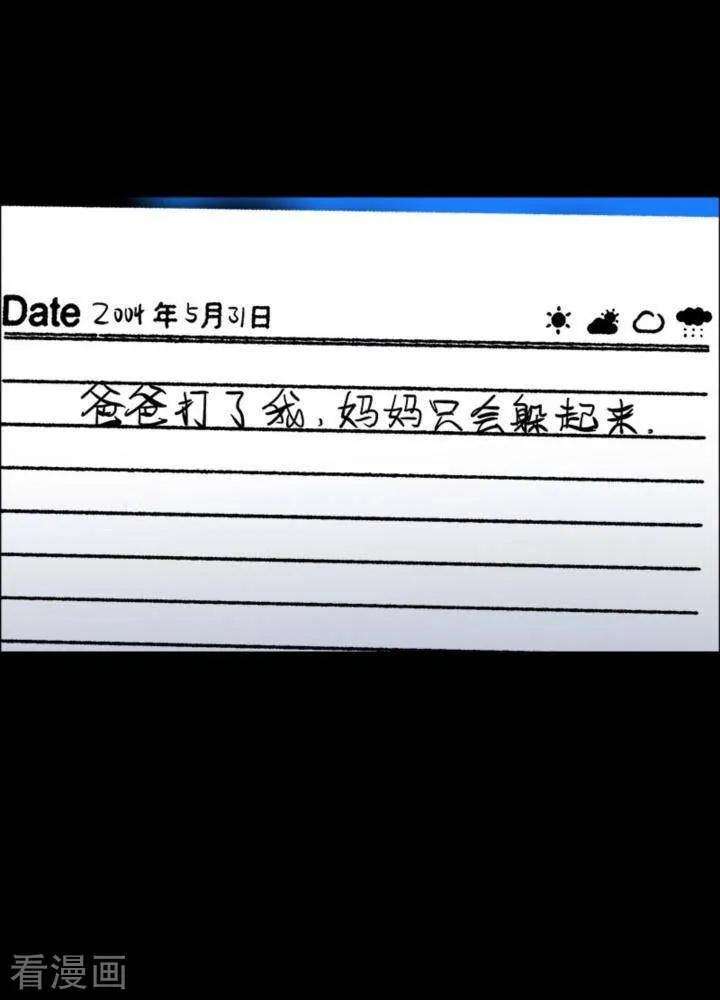 Date 2004年5月31日
爸爸打了我,妈妈只会躲起来.
看漫画